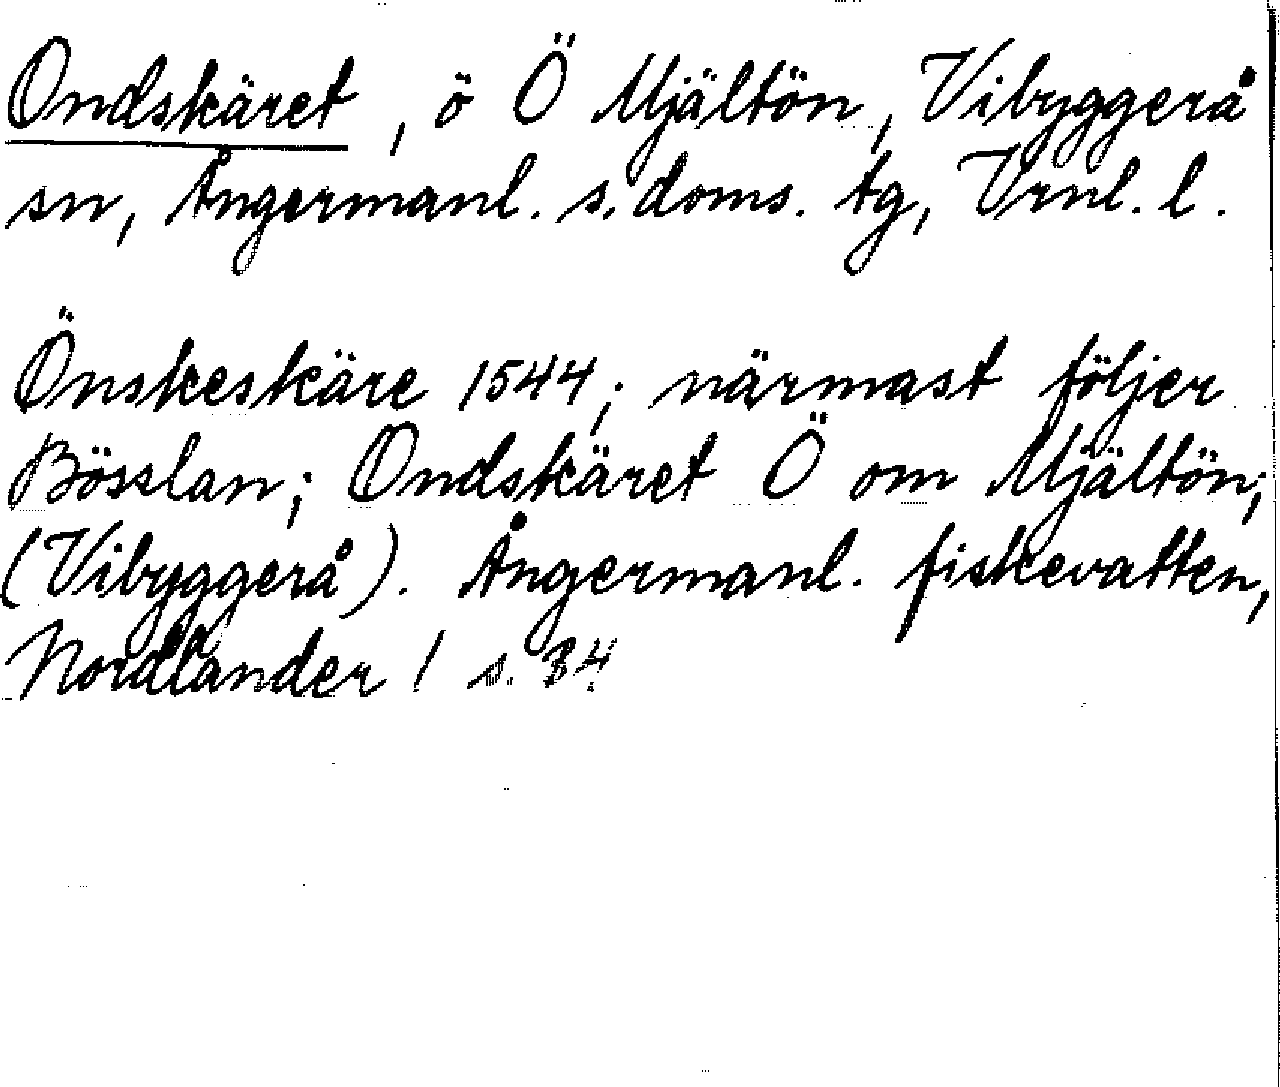 Ondskäret, ö Ö Mjältön, Vibyggerå
sn, Ångermanl. s. doms. tg, Vrnl. l.
Önskeskäre 1544; närmast följer
Bösslan; Ondskäret Ö om Mjältön;
(Vibyggerå). Ångermanl. fiskevatten,
Nordlander 1 s. 34